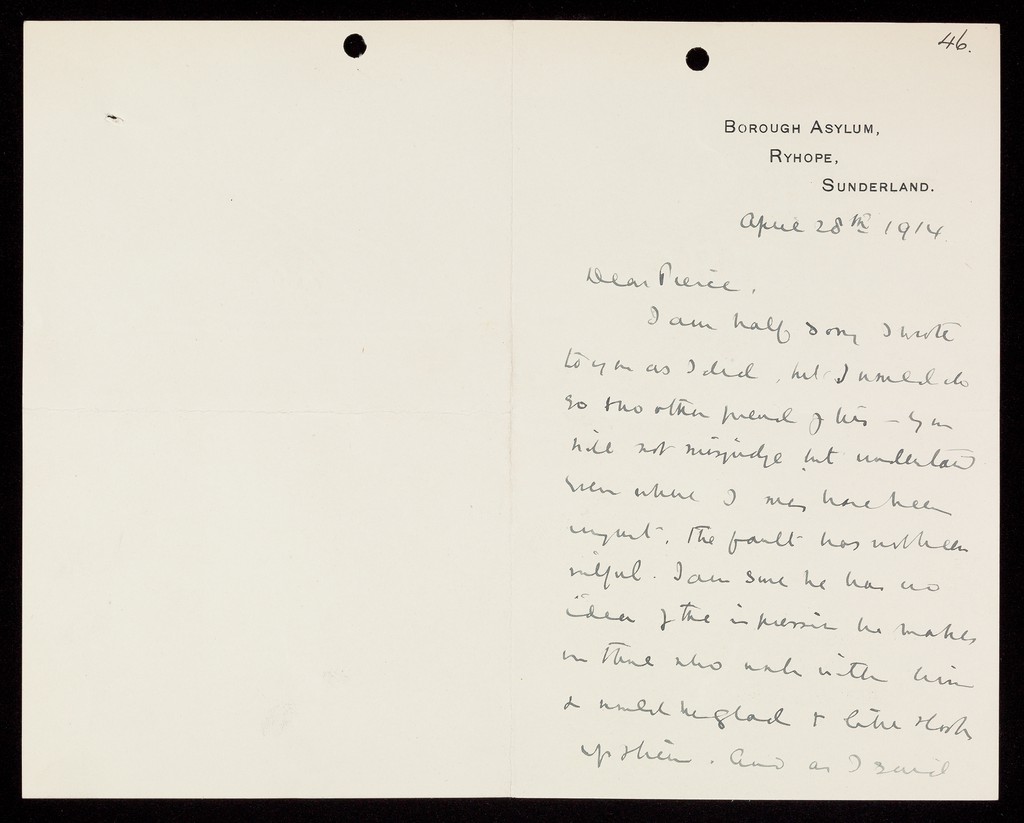 46.
BOROUGH ASYLUM,
RYHOPE,
SUNDERLAND.
April 28th 1914.
Dear Pierce,
I am half sorry I wrote
to you as I did, but I would do
so to no other friend of his – you
will not misjudge but understand
even where I may have been
unjust. The fault has not been
wilful. I am sure he has no
idea of the impression he makes
on those who work with him
& would be glad to
up them. And as I said